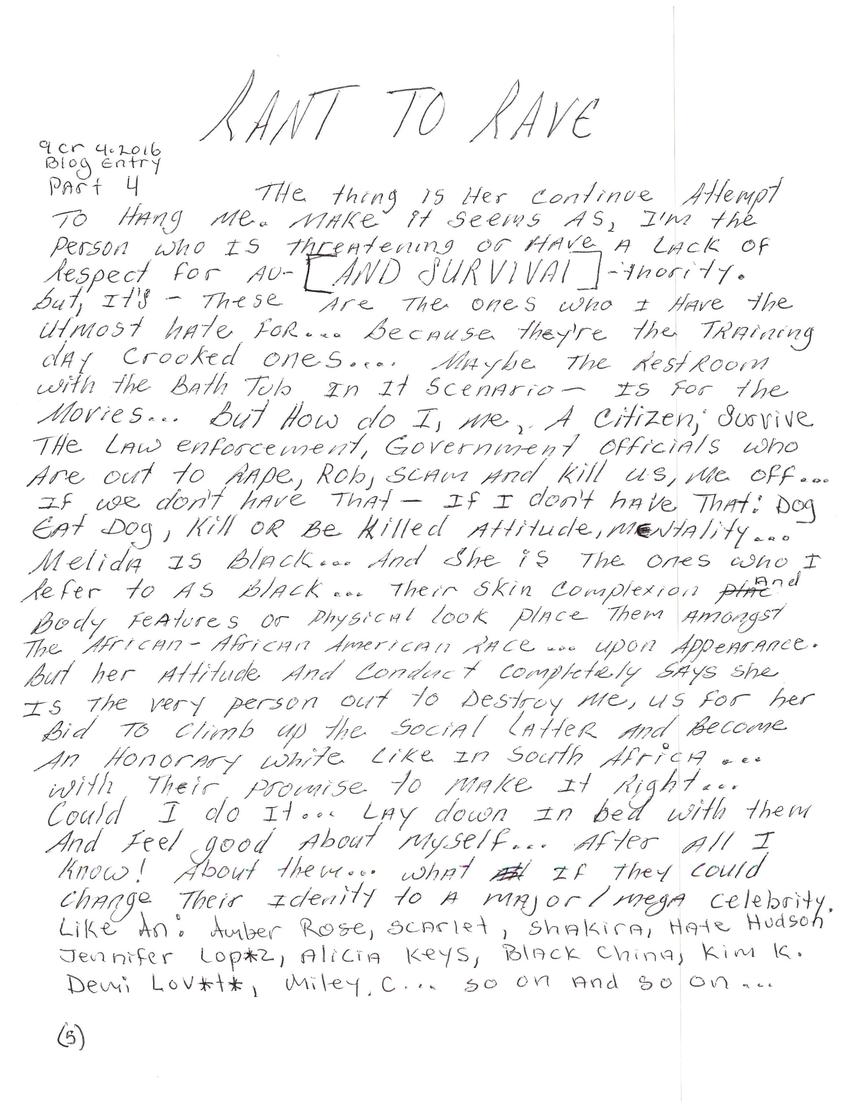 RANT TO RAVE
9cr 4.2016
Blog Entry
Part 4
THE thing is Her continue Attempt
TO HANG ME. MAKE it seems AS, I'm the
person who IS threatening or HAVE A LACK OF
Respect for AU- [AND SURVIVAL] -thority.
but, It's - These Are The ones who I HAVE the
utmost hate for.... Because they're the TRAining
day crooked ones.... Maybe The RestRoom
with the Bath Tub In It Scenario - IS For the
Movies... But How do I, me, A Citizen; Survive
THe LAW enforcement, Government officials who
Are out to RApe, Rob, SCAM And Kill us, me off....
If we don't have THAT - If I don't have That: Dog
EAt Dog, Kill OR Be Killed Attitude, MENtality....
Melida IS Black.... And She is The ones who I
Refer to AS Black... Their Skin Complexion And
Body Features or physical look place Them Amongst
The African-African American Race... upon Appearance.
But her Attitude And Conduct completely SAYs she
IS The very person out to Destroy me, us for her
Bid TO Climb up the Social Latter And Become
An Honorary white Like In South Africa ...
with Their promise to MAKE It Right...
Could I do It... LAY down In bed with them
And Feel good About Myself... After All I
Know! About them... what If they could
change Their Idenity to A major/mega celebrity.
Like An: Amber Rose, Scarlet, Shakira, Hate Hudson
Jennifer Lop*z, Alicia Keys, Black China, Kim K.
Demi Lov*t*, Miley.C... so on And so on ...
(5)